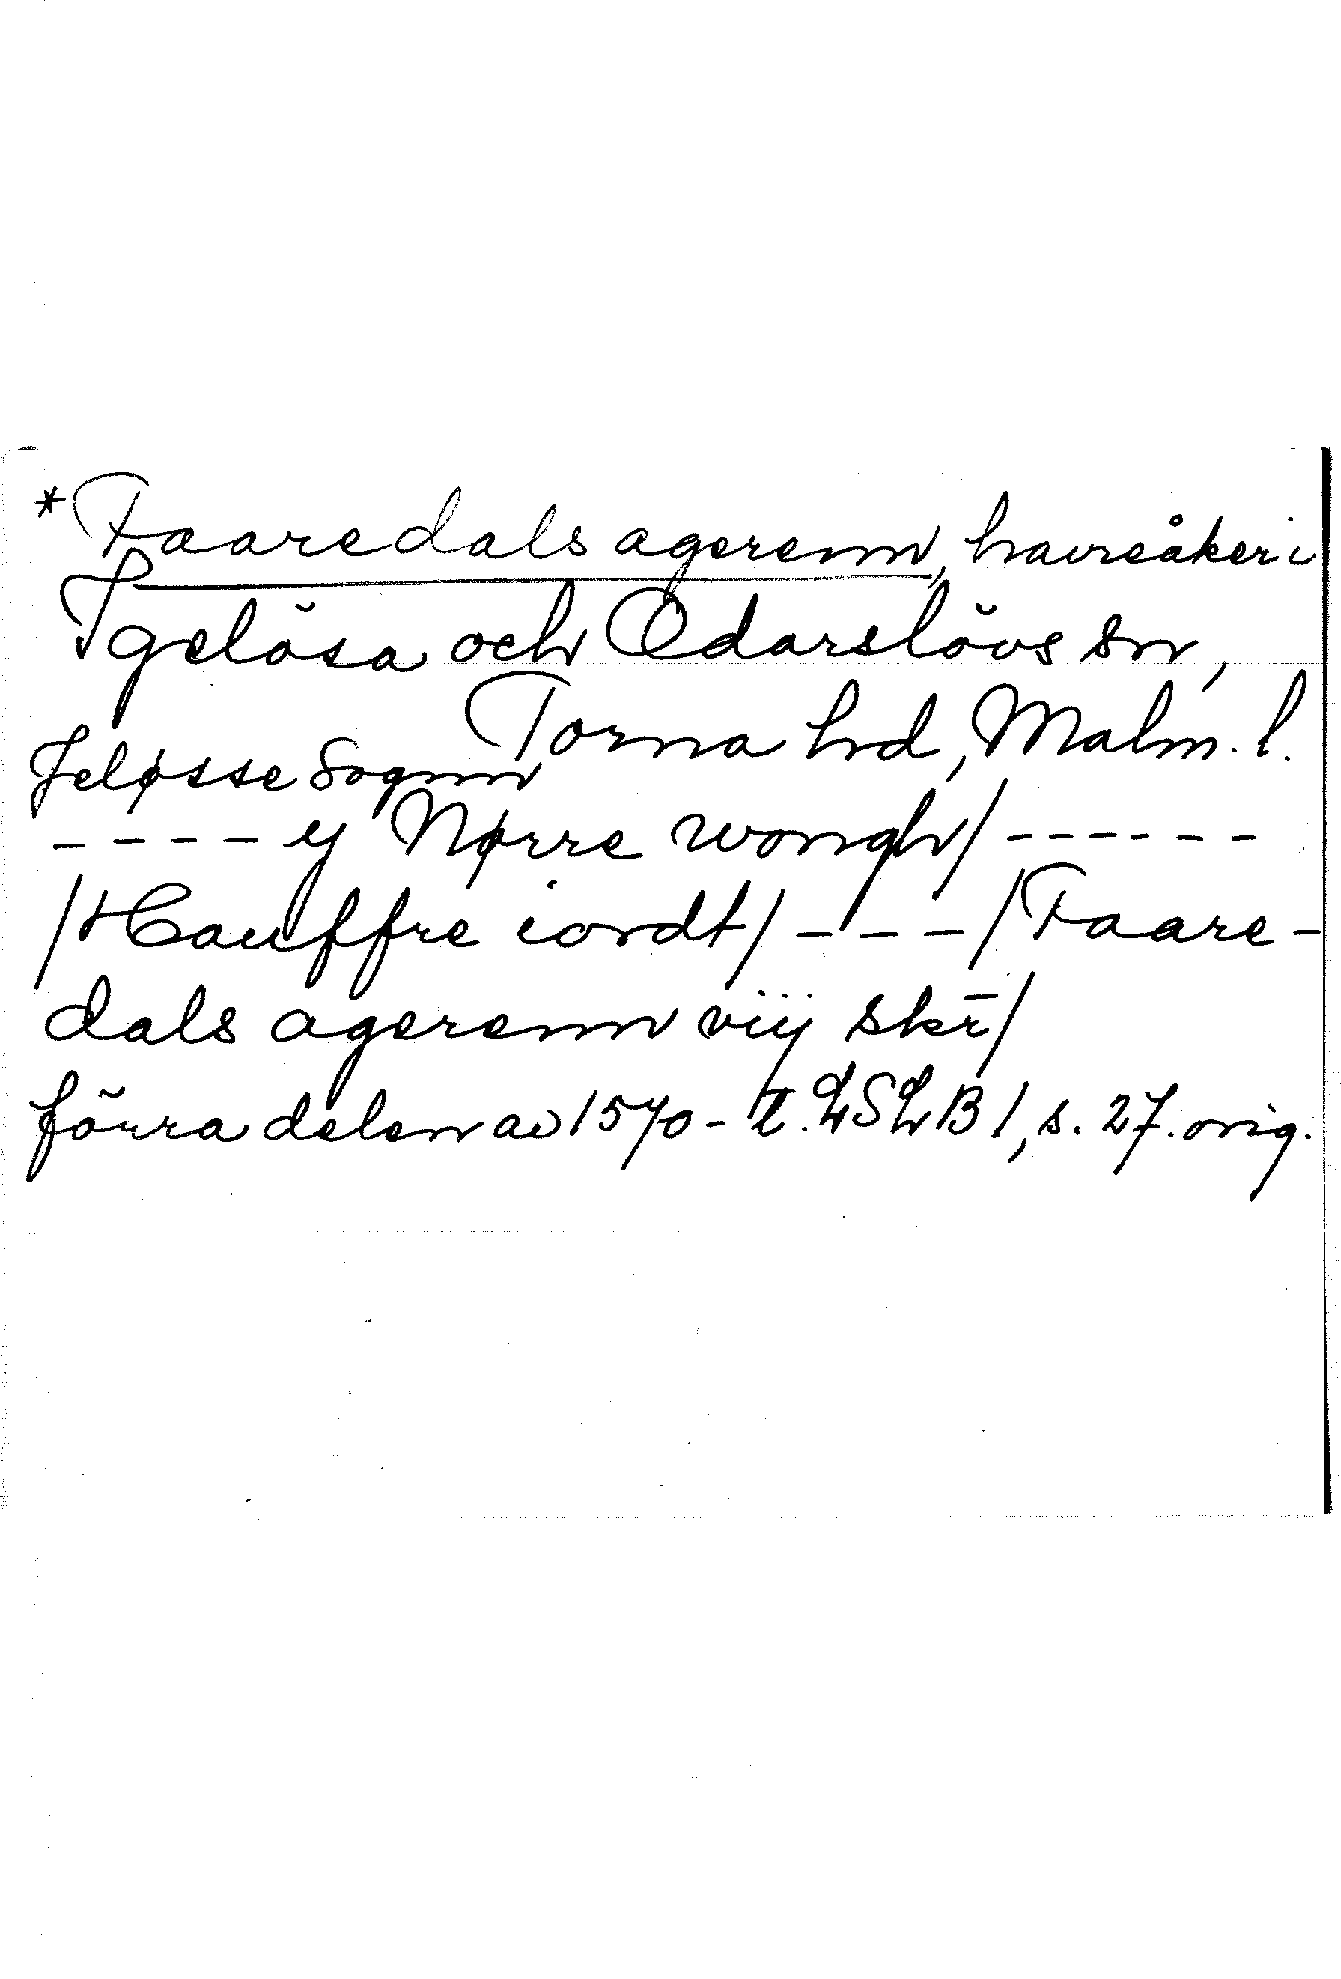 *Faaredals agerenn, havreåker i
Igelösa och Odarslövs sn,
Torna hd, Malm. l.
Jeløsse Sognn
---- y Nørre wongh/ ------
/Hauffre iordt/ --- /Faare-
dals agerenn viij skr̄/
förra delen av 1570-t. LSLB 1, s. 27. orig.